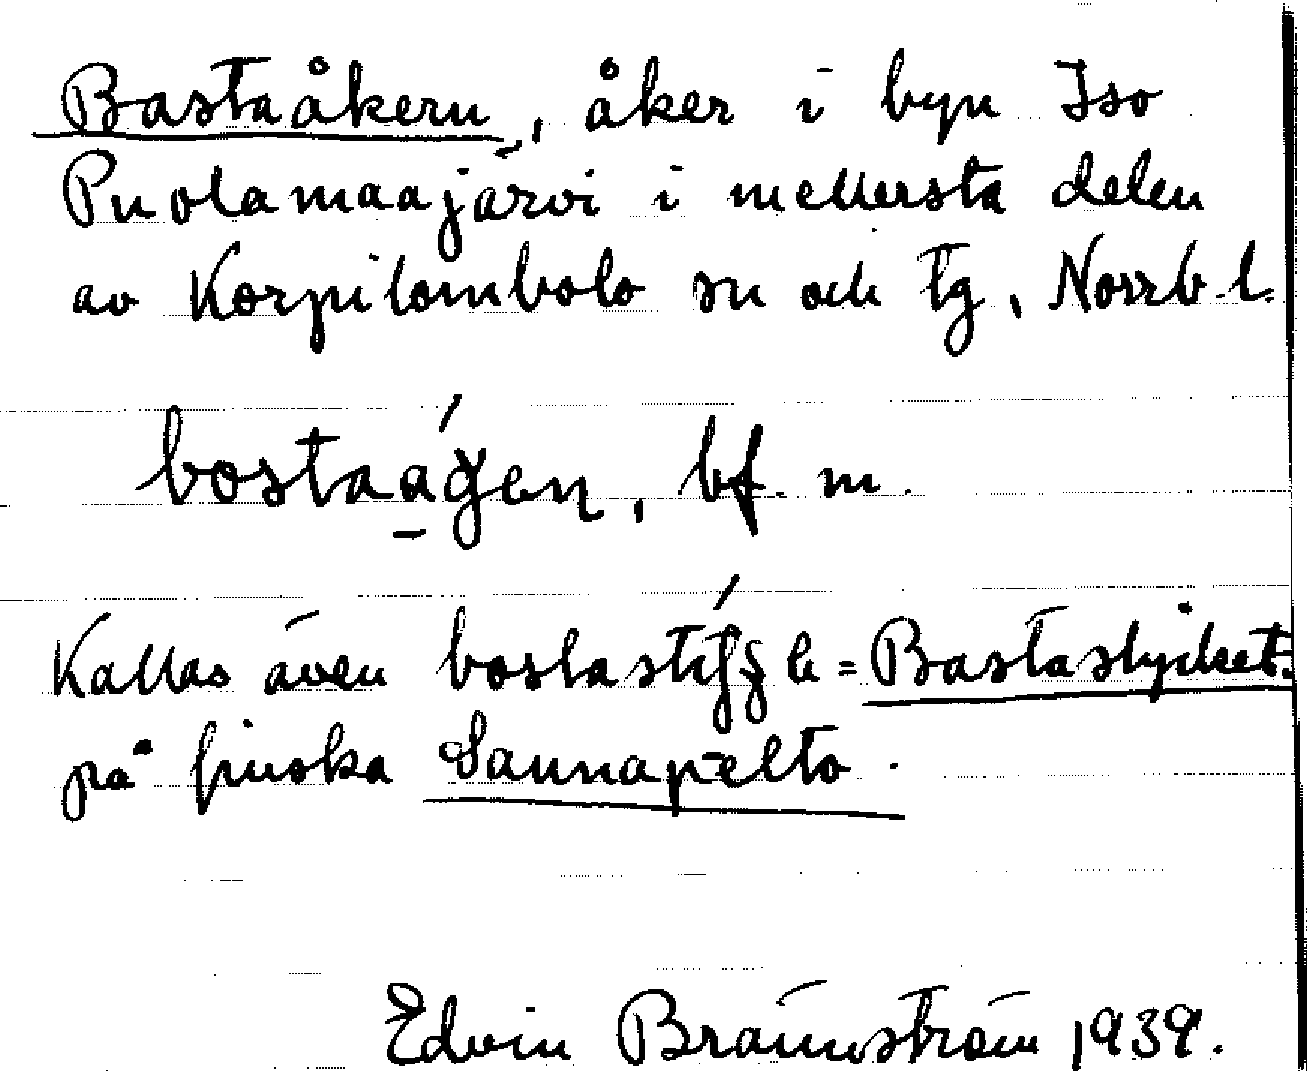 Bastaåkern, åker i byn Iso
Puolamaajärvi i mellersta delen
av Korpilombolo sn och tg, Norrb. l.
bostaágen, bf. m.
Kallas även = Bastastycket.
på finska Saunapelto.
Edvin Brännström 1939.